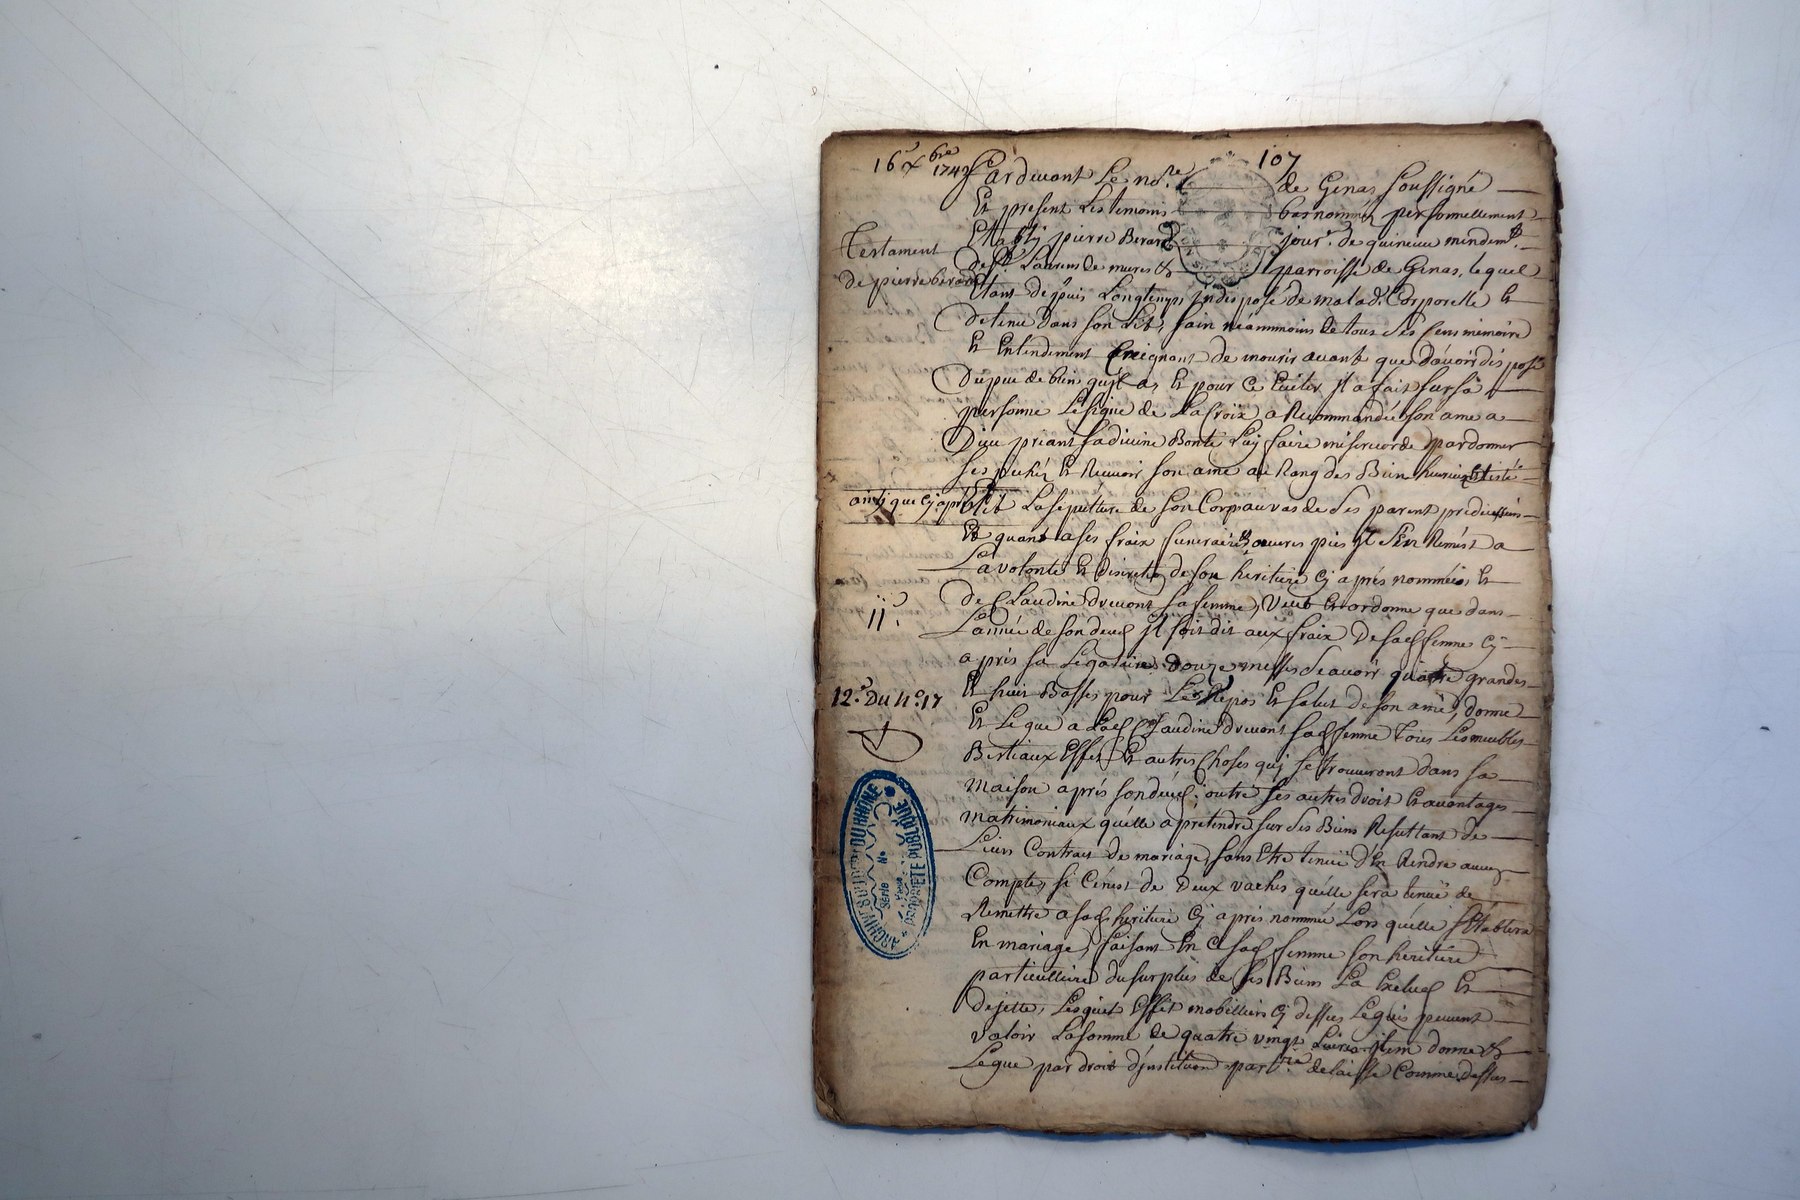 107
16e xbre 1742
Testament
de pierre berard
Pardevant Le no.re de Genas soussigné
Et present Les temoins bas nommés personnellement
Etably pierre Berard jour.r de quincieu mandem.t
de st. Laurens de mures & parroisse de Genas, lequel
Etant depuis Longtemps indisposé de malad.e Corporelle Et
detenu dans son Lit, sain neammoins de tous ses sens memoire
Et Entendement Craignant de mourir avant que d'avoir disposé
Du peu de bien qu'il a, Et pour ce Eviter il a fait sur sa
personne Le signe de La Croix a Recommandée son ame a
Dieu priant sa divine Bonté Luy faire misericorde pardonner
ses pechés Et Recevoir son ame au Rang des Bien heureux Et testé
ainsy que cy après Elit La sepulture de son Corp au vas de ses parent predecesseurs
Et quant a ses fraix funeraires & œuvres pies il s'En Remet a
La volonté Et discretion de son heritiere cy après nommée, Et
de Claudine drevont sa femme, Veut Et ordonne que dans
L'année de son deces il soit dit aux fraix de sad femme cy
après sa Legataire, douze messes scavoir quatre grandes
Et huit Basses pour Le Repos Et salut de son ame, donne
Et Legue a Lad Claudine drevont sad femme tous Les meubles
Bestiaux Effet Et autres Choses quy se trouveront dans sa
maison après son deces; outre ses autres droit Et avantages
matrimoniaux qu'elle a pretendre sur ses Biens Resultant de
Leurs Contrat de mariage, sans Etre tenuë d'En Rendre aucun
Compte, si Cénest de Deux vaches qu'elle sera tenuë de
Remettre a sad heritiere cy après nommée Lors qu'elle s'Etablira
En mariage, faisant En Ce sad femme son heritiere
particulliere du surplus de ses Biens La Exclud Et
dejette, Lesquels Effet mobilliers cy dessus Legués peuvent
valoir La somme de quatre vingt Livres item donne &
Legue par droit d'institution par.re delaisse Comme dessus
11.s
12.s Du n.o 17
ARCHIVES DU RHONE
Série
No
PROPRIÉTÉ PUBLIQUE